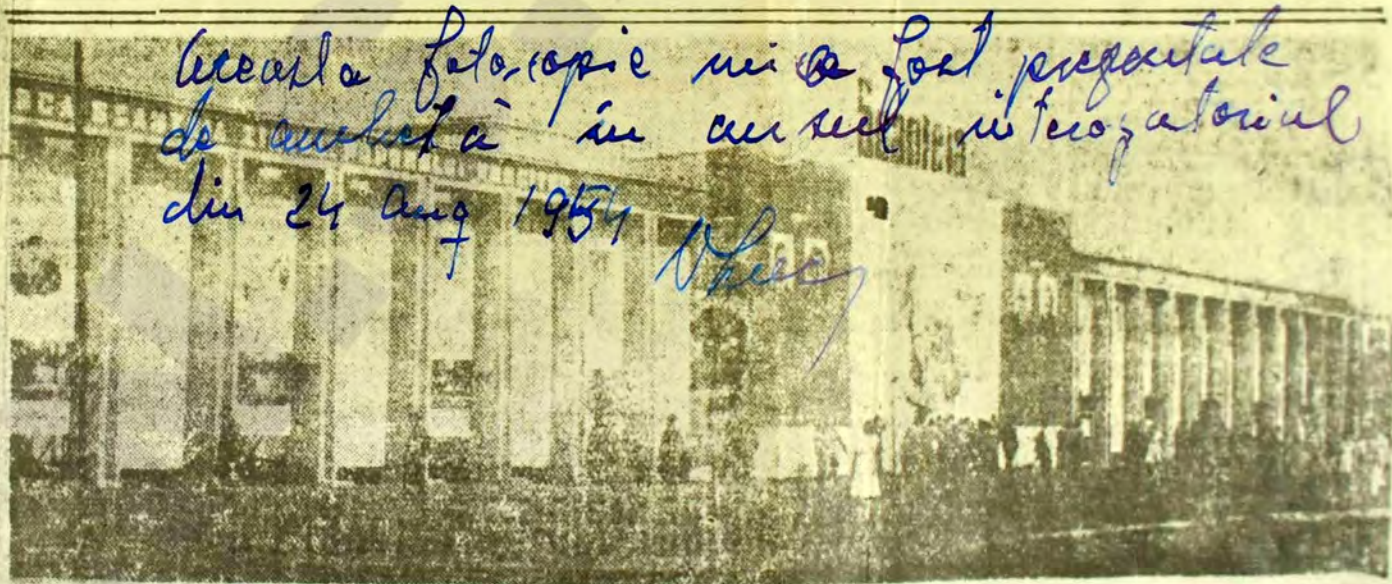 Aceasta fotocopie mi a fost prezentate
de anchetă în cursul interogatoriul
din 24 aug 1954